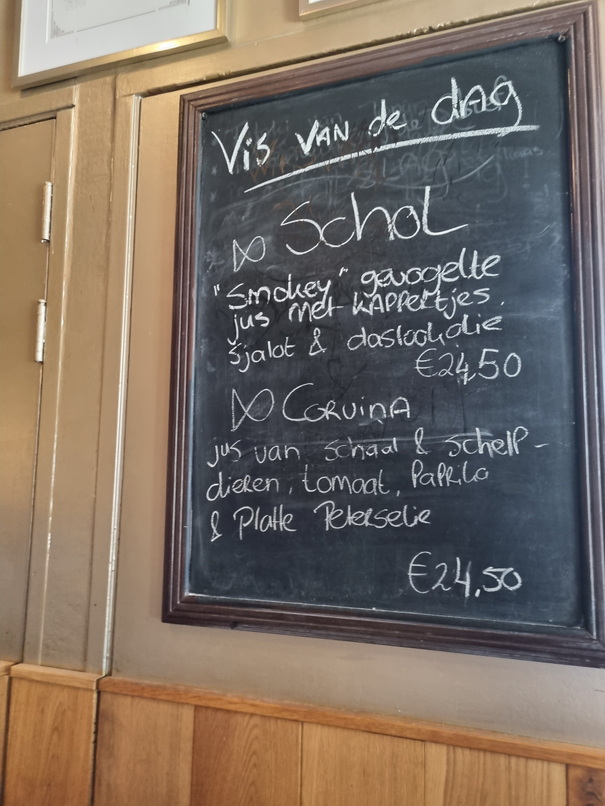 Vis van de dag
Schol
"Smokey" gevogelte
jus met kappertjes.
Sjalot & daslookolie
€24,50
Corvina
jus van schaal & schelp-
dieren, tomaat, Paprika
& Platte Peterselie
€24,50